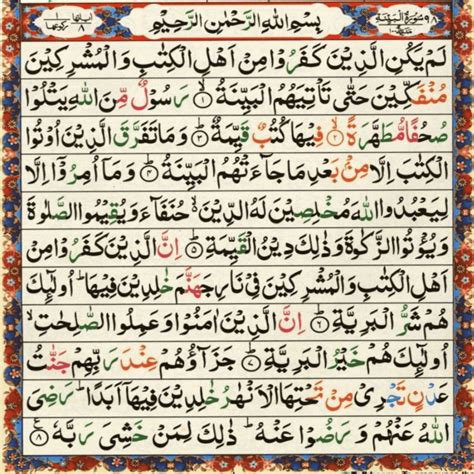 ٩٨ سُوْرَةُ الْبَيِّنَةِ
بِسْمِ اللهِ الرَّحْمٰنِ الرَّحِيْمِ
اٰيَاتُهَا ٨ رُكُوْعُهَا ١
لَمْ يَكُنِ الَّذِيْنَ كَفَرُوْا مِنْ اَهْلِ الْكِتٰبِ وَالْمُشْرِكِيْنَ
مُنْفَكِّيْنَ حَتّٰى تَاْتِيَهُمُ الْبَيِّنَةُ ۙ﴿١﴾ رَسُوْلٌ مِّنَ اللهِ يَتْلُوْا
صُحُفًا مُّطَهَّرَةً ۙ﴿٢﴾ فِيْهَا كُتُبٌ قَيِّمَةٌ ؕ﴿٣﴾ وَمَا تَفَرَّقَ الَّذِيْنَ اُوْتُوا
الْكِتٰبَ اِلَّا مِنْۢ بَعْدِ مَا جَآءَتْهُمُ الْبَيِّنَةُ ؕ﴿٤﴾ وَمَاۤ اُمِرُوْۤا اِلَّا
لِيَعْبُدُوا اللهَ مُخْلِصِيْنَ لَهُ الدِّيْنَ ۙ حُنَفَآءَ وَيُقِيْمُوا الصَّلٰوةَ
وَيُؤْتُوا الزَّكٰوةَ وَذٰلِكَ دِيْنُ الْقَيِّمَةِ ؕ﴿٥﴾ اِنَّ الَّذِيْنَ كَفَرُوْا مِنْ
اَهْلِ الْكِتٰبِ وَالْمُشْرِكِيْنَ فِيْ نَارِ جَهَنَّمَ خٰلِدِيْنَ فِيْهَا ؕ اُولٰٓئِكَ
هُمْ شَرُّ الْبَرِيَّةِ ؕ﴿٦﴾ اِنَّ الَّذِيْنَ اٰمَنُوْا وَعَمِلُوا الصّٰلِحٰتِ ۙ
اُولٰٓئِكَ هُمْ خَيْرُ الْبَرِيَّةِ ؕ﴿٧﴾ جَزَآؤُهُمْ عِنْدَ رَبِّهِمْ جَنّٰتُ
عَدْنٍ تَجْرِيْ مِنْ تَحْتِهَا الْاَنْهٰرُ خٰلِدِيْنَ فِيْهَاۤ اَبَدًا ؕ رَضِيَ
اللهُ عَنْهُمْ وَرَضُوْا عَنْهُ ؕ ذٰلِكَ لِمَنْ خَشِيَ رَبَّهٗ ﴿٨﴾